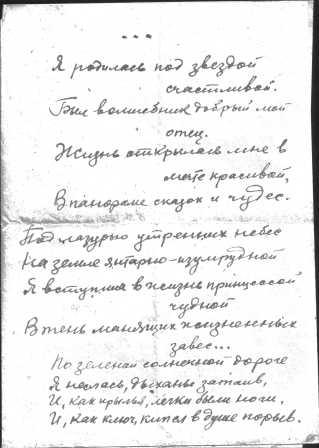 * * *
Я родилась под звездой
счастливой.
Был волшебник добрый мой
отец.
Жизнь открылась мне в
мечте красивой,
В панораме сказок и чудес.
Под лазурью утренних небес
На земле янтарно-изумрудной
Я вступила в жизнь принцессой
чудной
В тень манящих жизненных
завес...
По зеленой солнечной дороге
Я неслась, дыханье затаив,
И, как крылья, легки были ноги.
И, как ключ, кипел в душе порыв.